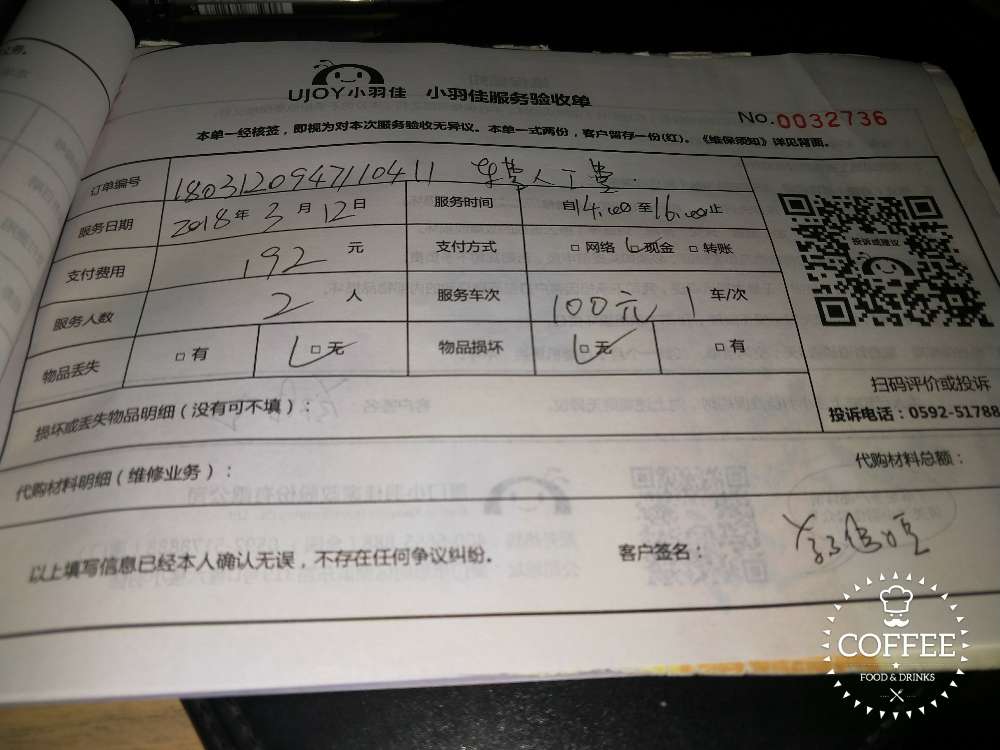 UJOY小羽佳 小羽佳服务验收单
No.0032736
本单一经核签，即视为对本次服务验收无异议。本单一式两份，客户留存一份(红)。《维保须知》详见背面。
订单编号 1803120947110411
服务日期 2018年3月12日 服务时间 自14:00至16:00止
投诉或建议
支付费用 192元 支付方式 □网络 □现金 □转账
服务人数 2人 服务车次 100元 1车/次
物品丢失 □有 □无 物品损坏 □无 □有
扫码评价或投诉
投诉电话：0592-51788
损坏或丢失物品明细（没有可不填）：
代购材料明细（维修业务）： 代购材料总额：
以上填写信息已经本人确认无误，不存在任何争议纠纷。 客户签名：
COFFEE
FOOD & DRINKS